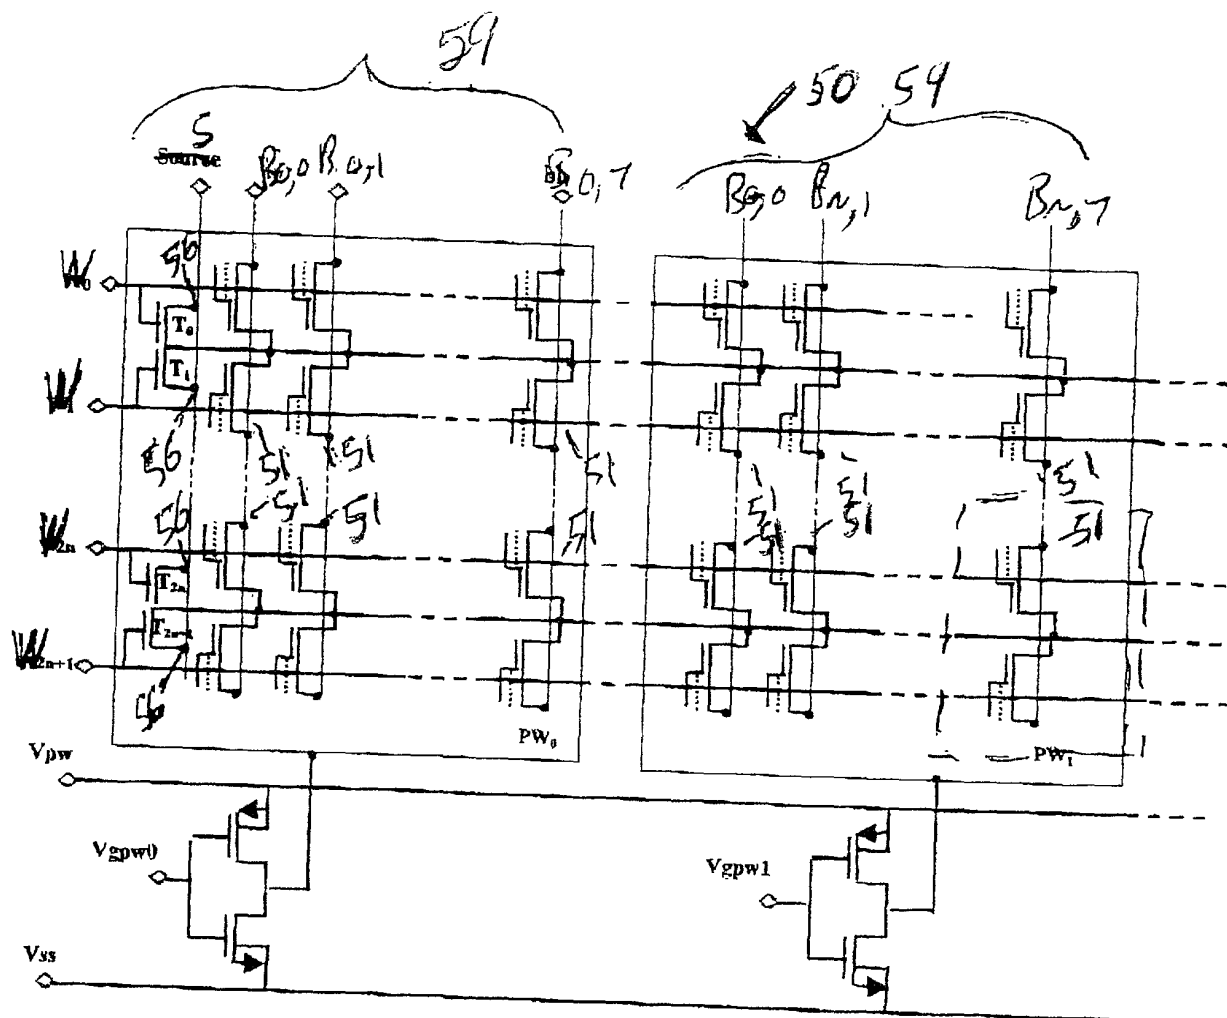 59
50 59
S
Source
B0,0 B0,1
0,7
B0,0 Bn,1
Bn,7
W0
56
T0
T1
W1
56
51 51 51
51 51 51
56
51 51 51
51 51
W2n
T2n
T2n+1
W2n+1
56
PW0
PW1
Vpw
Vgpw0
Vgpw1
Vss